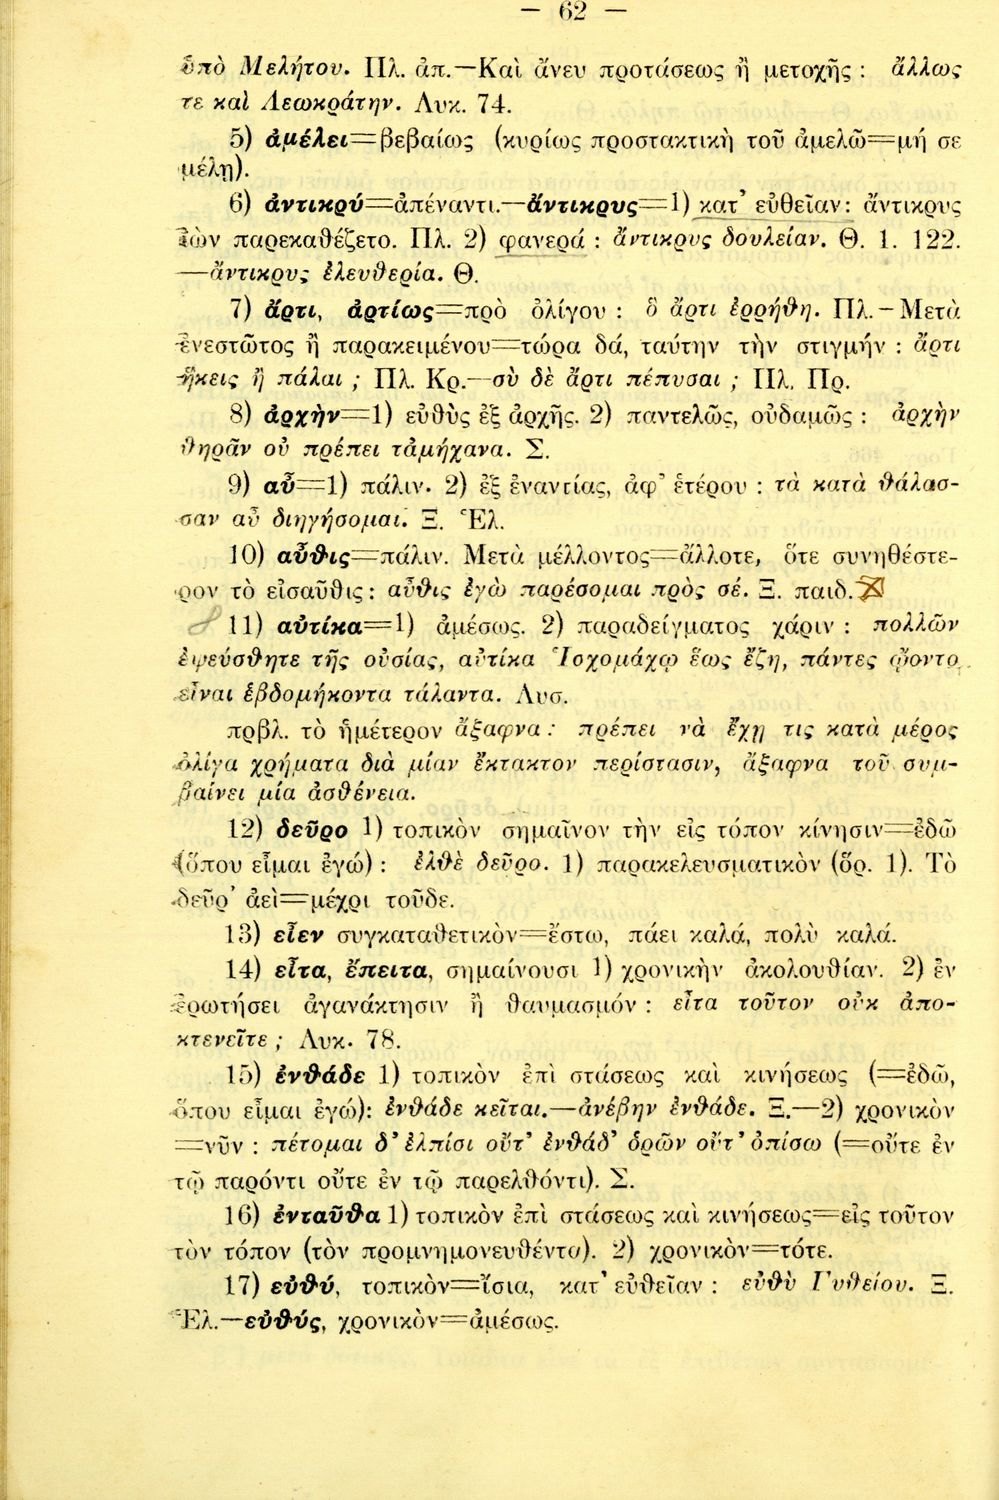 — 62 —
ὑπὸ Μελήτου. Πλ. ἀπ.—Καὶ ἄνευ προτάσεως ἢ μετοχῆς : ἄλλως
τε καὶ Λεωκράτην. Λυκ. 74.
5) ἀμέλει=βεβαίως (κυρίως προστακτικὴ τοῦ ἀμελῶ=μή σε
μέλῃ).
6) ἀντικρύ=ἀπέναντι.—ἄντικρυς=1) κατ' εὐθεῖαν: ἄντικρυς
ἰὼν παρεκαθέζετο. Πλ. 2) φανερά : ἄντικρυς δουλείαν. Θ. 1. 122.
—ἄντικρυς ἐλευθερία. Θ.
7) ἄρτι, ἀρτίως=πρὸ ὀλίγου : ὃ ἄρτι ἐρρήθη. Πλ.—Μετὰ
ἐνεστῶτος ἢ παρακειμένου=τώρα δά, ταύτην τὴν στιγμήν : ἄρτι
ἥκεις ἢ πάλαι ; Πλ. Κρ.—σὺ δὲ ἄρτι πέπυσαι ; Πλ. Πρ.
8) ἀρχὴν=1) εὐθὺς ἐξ ἀρχῆς. 2) παντελῶς, οὐδαμῶς : ἀρχὴν
θηρᾶν οὐ πρέπει τἀμήχανα. Σ.
9) αὖ=1) πάλιν. 2) ἐξ ἐναντίας, ἀφ' ἑτέρου : τὰ κατὰ θάλασ-
σαν αὖ διηγήσομαι. Ξ. Ἑλ.
10) αὖθις=πάλιν. Μετὰ μέλλοντος=ἄλλοτε, ὅτε συνηθέστε-
ρον τὸ εἰσαῦθις: αὖθις ἐγὼ παρέσομαι πρὸς σέ. Ξ. παιδ.
11) αὐτίκα=1) ἀμέσως. 2) παραδείγματος χάριν : πολλῶν
ἐψεύσθητε τῆς οὐσίας, αὐτίκα Ἰσχομάχῳ ἕως ἔζη, πάντες ᾤοντο
εἶναι ἑβδομήκοντα τάλαντα. Λυσ.
πρβλ. τὸ ἡμέτερον ἄξαφνα : πρέπει νὰ ἔχῃ τις κατὰ μέρος
ὀλίγα χρήματα διὰ μίαν ἔκτακτον περίστασιν, ἄξαφνα τοῦ συμ-
βαίνει μία ἀσθένεια.
12) δεῦρο 1) τοπικὸν σημαῖνον τὴν εἰς τόπον κίνησιν=ἐδῶ
(ὅπου εἶμαι ἐγώ) : ἐλθὲ δεῦρο. 1) παρακελευσματικὸν (ὅρ. 1). Τὸ
δεῦρ' ἀεὶ=μέχρι τοῦδε.
13) εἶεν συγκαταθετικὸν=ἔστω, πάει καλά, πολὺ καλά.
14) εἶτα, ἔπειτα, σημαίνουσι 1) χρονικὴν ἀκολουθίαν. 2) ἐν
ἐρωτήσει ἀγανάκτησιν ἢ θαυμασμόν : εἶτα τοῦτον οὐκ ἀπο-
κτενεῖτε ; Λυκ. 78.
15) ἐνθάδε 1) τοπικὸν ἐπὶ στάσεως καὶ κινήσεως (=ἐδῶ,
ὅπου εἶμαι ἐγώ): ἐνθάδε κεῖται.—ἀνέβην ἐνθάδε. Ξ.—2) χρονικὸν
=νῦν : πέτομαι δ' ἐλπίσι οὔτ' ἐνθάδ' ὁρῶν οὔτ' ὀπίσω (=οὔτε ἐν
τῷ παρόντι οὔτε ἐν τῷ παρελθόντι). Σ.
16) ἐνταῦθα 1) τοπικὸν ἐπὶ στάσεως καὶ κινήσεως=εἰς τοῦτον
τὸν τόπον (τὸν προμνημονευθέντα). 2) χρονικὸν=τότε.
17) εὐθύ, τοπικὸν=ἴσια, κατ' εὐθεῖαν : εὐθὺ Γυθείου. Ξ.
Ἑλ.—εὐθύς, χρονικὸν=ἀμέσως.